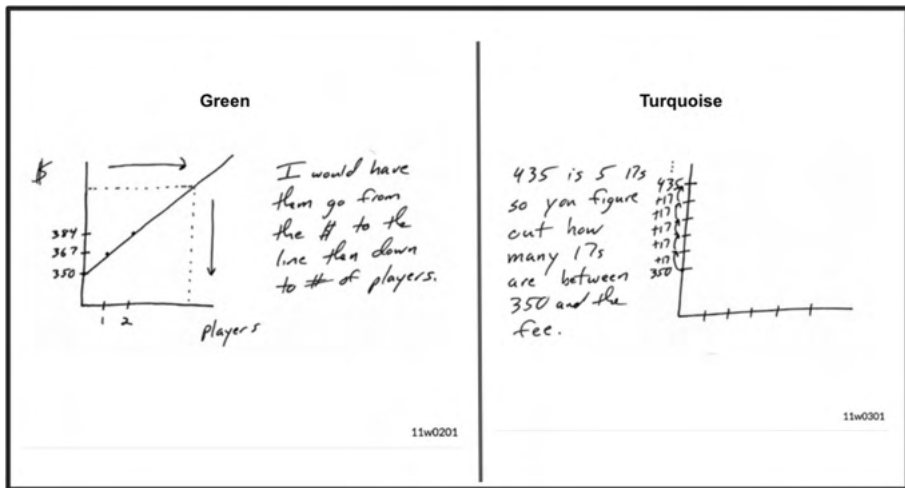 Green
$
384
367
350
1 2
players
I would have
them go from
the # to the
line then down
to # of players.
11w0201
Turquoise
435 is 5 17s
so you figure
out how
many 17s
are between
350 and the
fee.
435
+17
+17
+17
+17
+17
350
11w0301